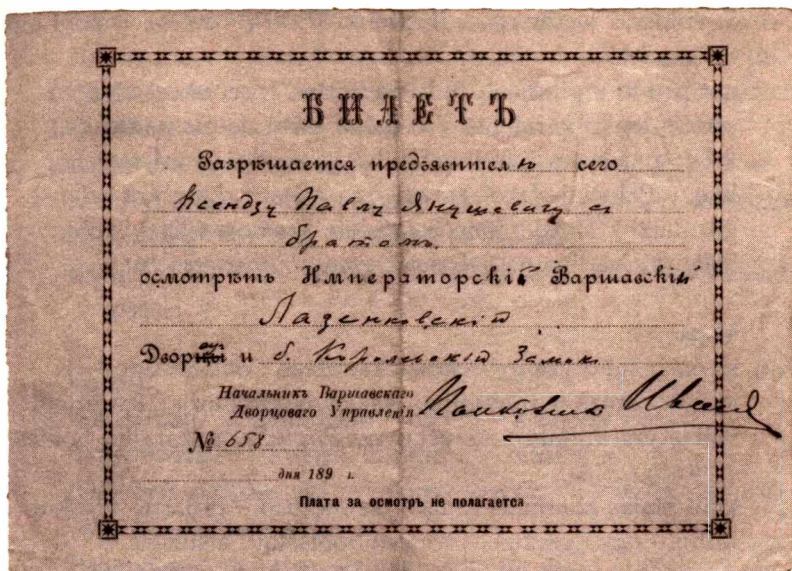 БИЛЕТЪ
Разрѣшается предъявителю сего
Ксендзу Павлу Янушевичу съ
братомъ
осмотрѣть Императорскій Варшавскій
Лазенковскій
Дворецъ и б. Королевскій Замокъ
Начальникъ Варшавскаго
Дворцоваго Управленія
№ 658
дня 189 г.
Плата за осмотръ не полагается